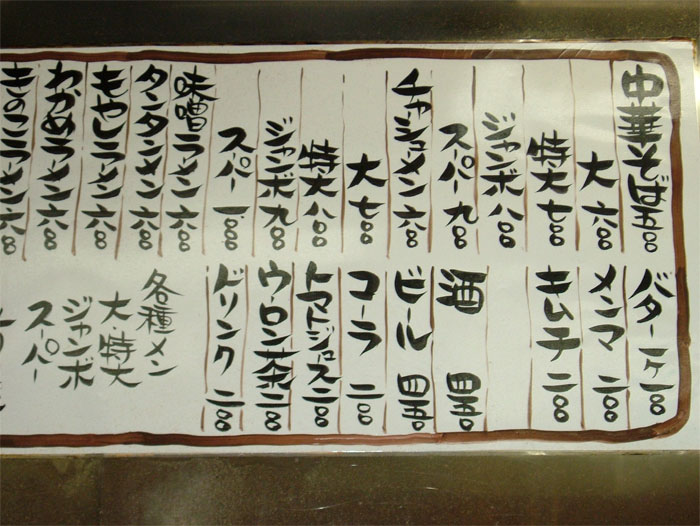 中華そば 五〇〇
大 六〇〇
特大 七〇〇
ジャンボ 八〇〇
スーパー 九〇〇
チャーシューメン 六〇〇
大 七〇〇
特大 八〇〇
ジャンボ 九〇〇
スーパー 一、〇〇〇
味噌ラーメン 六〇〇
タンタンメン 六〇〇
もやしラーメン 六〇〇
わかめラーメン 六〇〇
きのこラーメン 六〇〇
バター 一ケ 一〇〇
メンマ 二〇〇
キムチ 二〇〇
酒 四五〇
ビール 四五〇
コーラ 二〇〇
トマトジュース 二〇〇
ウーロン茶 二〇〇
ドリンク 二〇〇
各種メン
大・特大
ジャンボ
スーパー